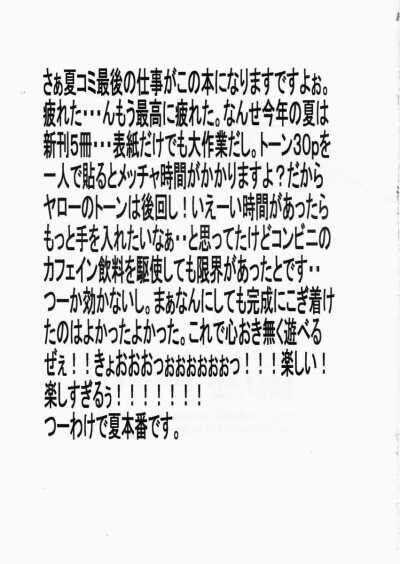 さぁ夏コミ最後の仕事がこの本になりますですよぉ。
疲れた・・・んもう最高に疲れた。なんせ今年の夏は
新刊5冊・・・表紙だけでも大作業だし。トーン30pを
一人で貼るとメッチャ時間がかかりますよ?だから
ヤローのトーンは後回し!いえーい時間があったら
もっと手を入れたいなぁ・・と思ってたけどコンビニの
カフェイン飲料を駆使しても限界があったとです・・
つーか効かないし。まぁなんにしても完成にこぎ着け
たのはよかったよかった。これで心おき無く遊べる
ぜぇ!!きょおおおっぉぉぉぉぉぉっ!!!楽しい!
楽しすぎるぅ!!!!!!!
つーわけで夏本番です。